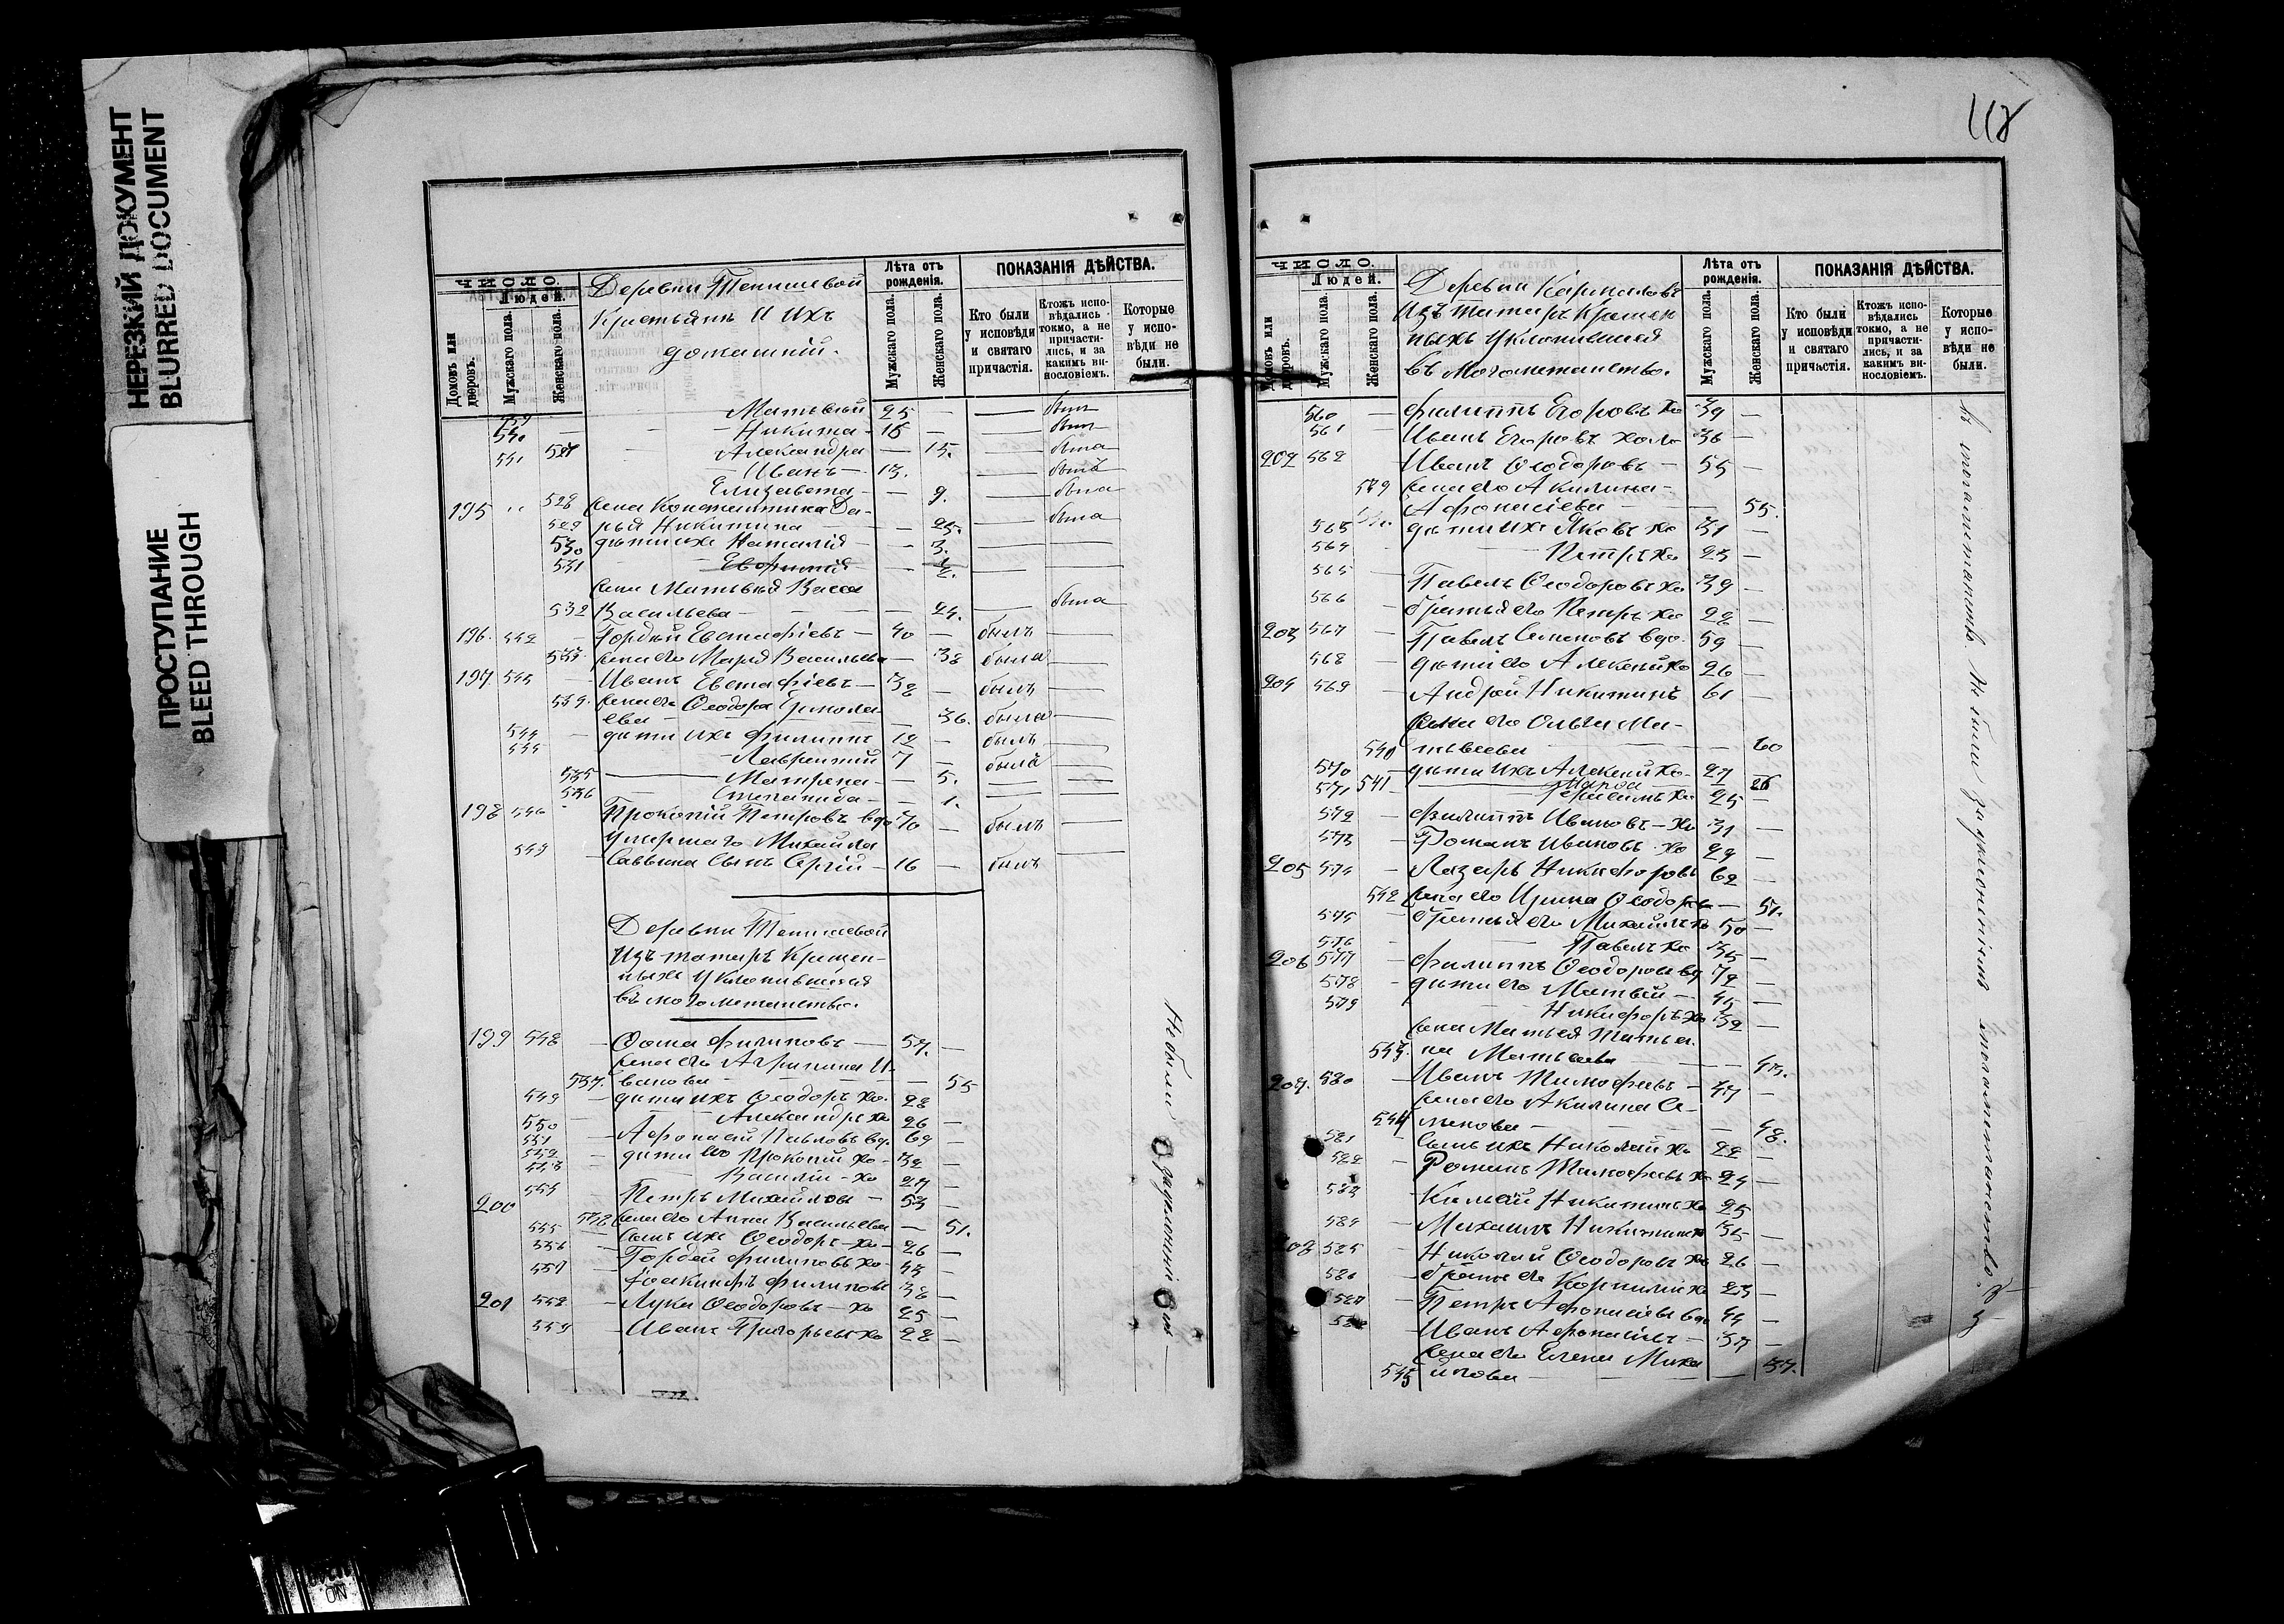 НЕРЕЗКИЙ ДОКУМЕНТ
BLURRED DOCUMENT
ПРОСТУПАНИЕ
BLEED THROUGH
ЧИСЛО.
Людей.
Домовъ или дворовъ.
Мужскаго пола.
Женскаго пола.
Деревни Тенишевой
Крестьяне и ихъ
домашніи.
Лѣта отъ рожденія.
Мужскаго пола.
Женскаго пола.
ПОКАЗАНІЯ ДѢЙСТВА.
Кто были у исповѣди и святаго причастія.
Ктожъ исповѣдались токмо, а не причастились, и за какимъ винословіемъ.
Которые у исповѣди не были.
Матвѣй 25 —
540 — Никита 18 —
527 Александра — 15.
541 — Иванъ — 13.
528 Елизавета — 9.
195 жена Константина Да-
529 рья Никитина — 25.
530 дѣти ихъ Наталія — 3.
531 Евфимія
жена Матвѣя Васса
532 Васильева — 24.
196. 542 — Гордѣй Евстафіевъ — 40 — былъ
533 жена его Марія Васильева — 38 была
197 543 — Иванъ Евстафіевъ — 38 — былъ
534. жена его Ѳеодора Ермола-
ева — 36. была
544 — дѣти ихъ Филиппъ 12 — былъ
545 Лаврентій 7 —
535 Матрена — 5.
536 Степанида — 1.
198 546 Прокопій Петровъ вдо 70 — былъ
умершаго Михайла
Саввина сынъ Сергій — 16 — былъ
Деревни Тенишевой
Изъ татаръ крещен-
ныхъ уклонившіяся
въ могометанство.
199 548 — Ѳома Филиповъ — 57. —
жена его Агрипина И-
537. ванова — — 55
549 — дѣти ихъ Ѳеодоръ хо. 28
550 — Александръ хо 26 —
551 — Аѳонасій Павловъ вд. 69 —
552 — дѣти его Прокопій хо 32 —
553 Василій — хо 27 —
200 554 Петръ Михайловъ — 53 —
538 жена его Анна Васильева — 51.
555 сынъ ихъ Ѳеодоръ — хо — 26 —
556 — Гордѣй Филиповъ хо. 43 —
557 Іоакимфъ Филиповъ 38 —
201 558 — Лука Ѳеодоровъ — хо 25 —
559 — Иванъ Григорьевъ хо 28 —
Не были
118
ЧИСЛО.
Людей.
Домовъ или дворовъ.
Мужскаго пола.
Женскаго пола.
Деревни Кармаловъ
Изъ татаръ крещен
ныхъ уклонившіяся
въ Могометанство.
Лѣта отъ рожденія.
Мужскаго пола.
Женскаго пола.
ПОКАЗАНІЯ ДѢЙСТВА.
Кто были у исповѣди и святаго причастія.
Ктожъ исповѣдались токмо, а не причастились, и за какимъ винословіемъ.
Которые у исповѣди не были.
560 — Филиппъ Егоровъ хо 39 —
561 Иванъ Егоровъ холо 36 —
202 562 — Иванъ Ѳеодоровъ — 55 —
539 жена его Акилина
Аѳонасіева — 55.
563 дѣти ихъ Яковъ хо 31 —
564 — Петръ хо 23 —
565 Павелъ Ѳеодоровъ хо 39 —
566 братья его Петръ хо 28 —
203 567 — Павелъ Семеновъ вдо. 59 —
568 — дѣти его Алексѣй хо 26 —
204 569 — Андрей Никитинъ 61 —
жена его Ольга Ма-
540 твѣева — 60
570 — дѣти ихъ Алексѣй хо. 27 —
541 — Марѳа — 26
571 Герасимъ хо 25 —
572 — Филиппъ Ивановъ — хо 31 —
573 — Романъ Ивановъ хо 29 —
205 574 — Лазарь Никифоровъ 62 —
542 жена его Ирина Ѳеодорова — 51.
575 — братья его Михайлъ хо 50 —
576 Павелъ хо 35 —
206 577 — Филиппъ Ѳеодоровъ вд. 72 —
578 — дѣти его Матвѣй — 45 —
579 Никифоръ хо 32 —
жена Матвѣя Татья-
543. на Матвѣева — 43.
207. 580 — Иванъ Тимофеевъ — 47 —
жена его Акилина Се-
544 менова — 48.
581 — сынъ ихъ Николай хо 22 —
582 — Романъ Тимофеевъ хо 24 —
583 Никитинъ хо 25
584 — Михаилъ Никитинъ 35 —
208 585 — Николай Ѳеодоровъ хо 26 —
586 — братъ его Корнилій хо 23 —
587 — Петръ Аѳонасіевъ вдо 44 —
588 — Иванъ Аѳонасіевъ — 37 —
жена его Елена Миха
545 йлова — 37.
въ могометанство. Не были за уклоненіемъ